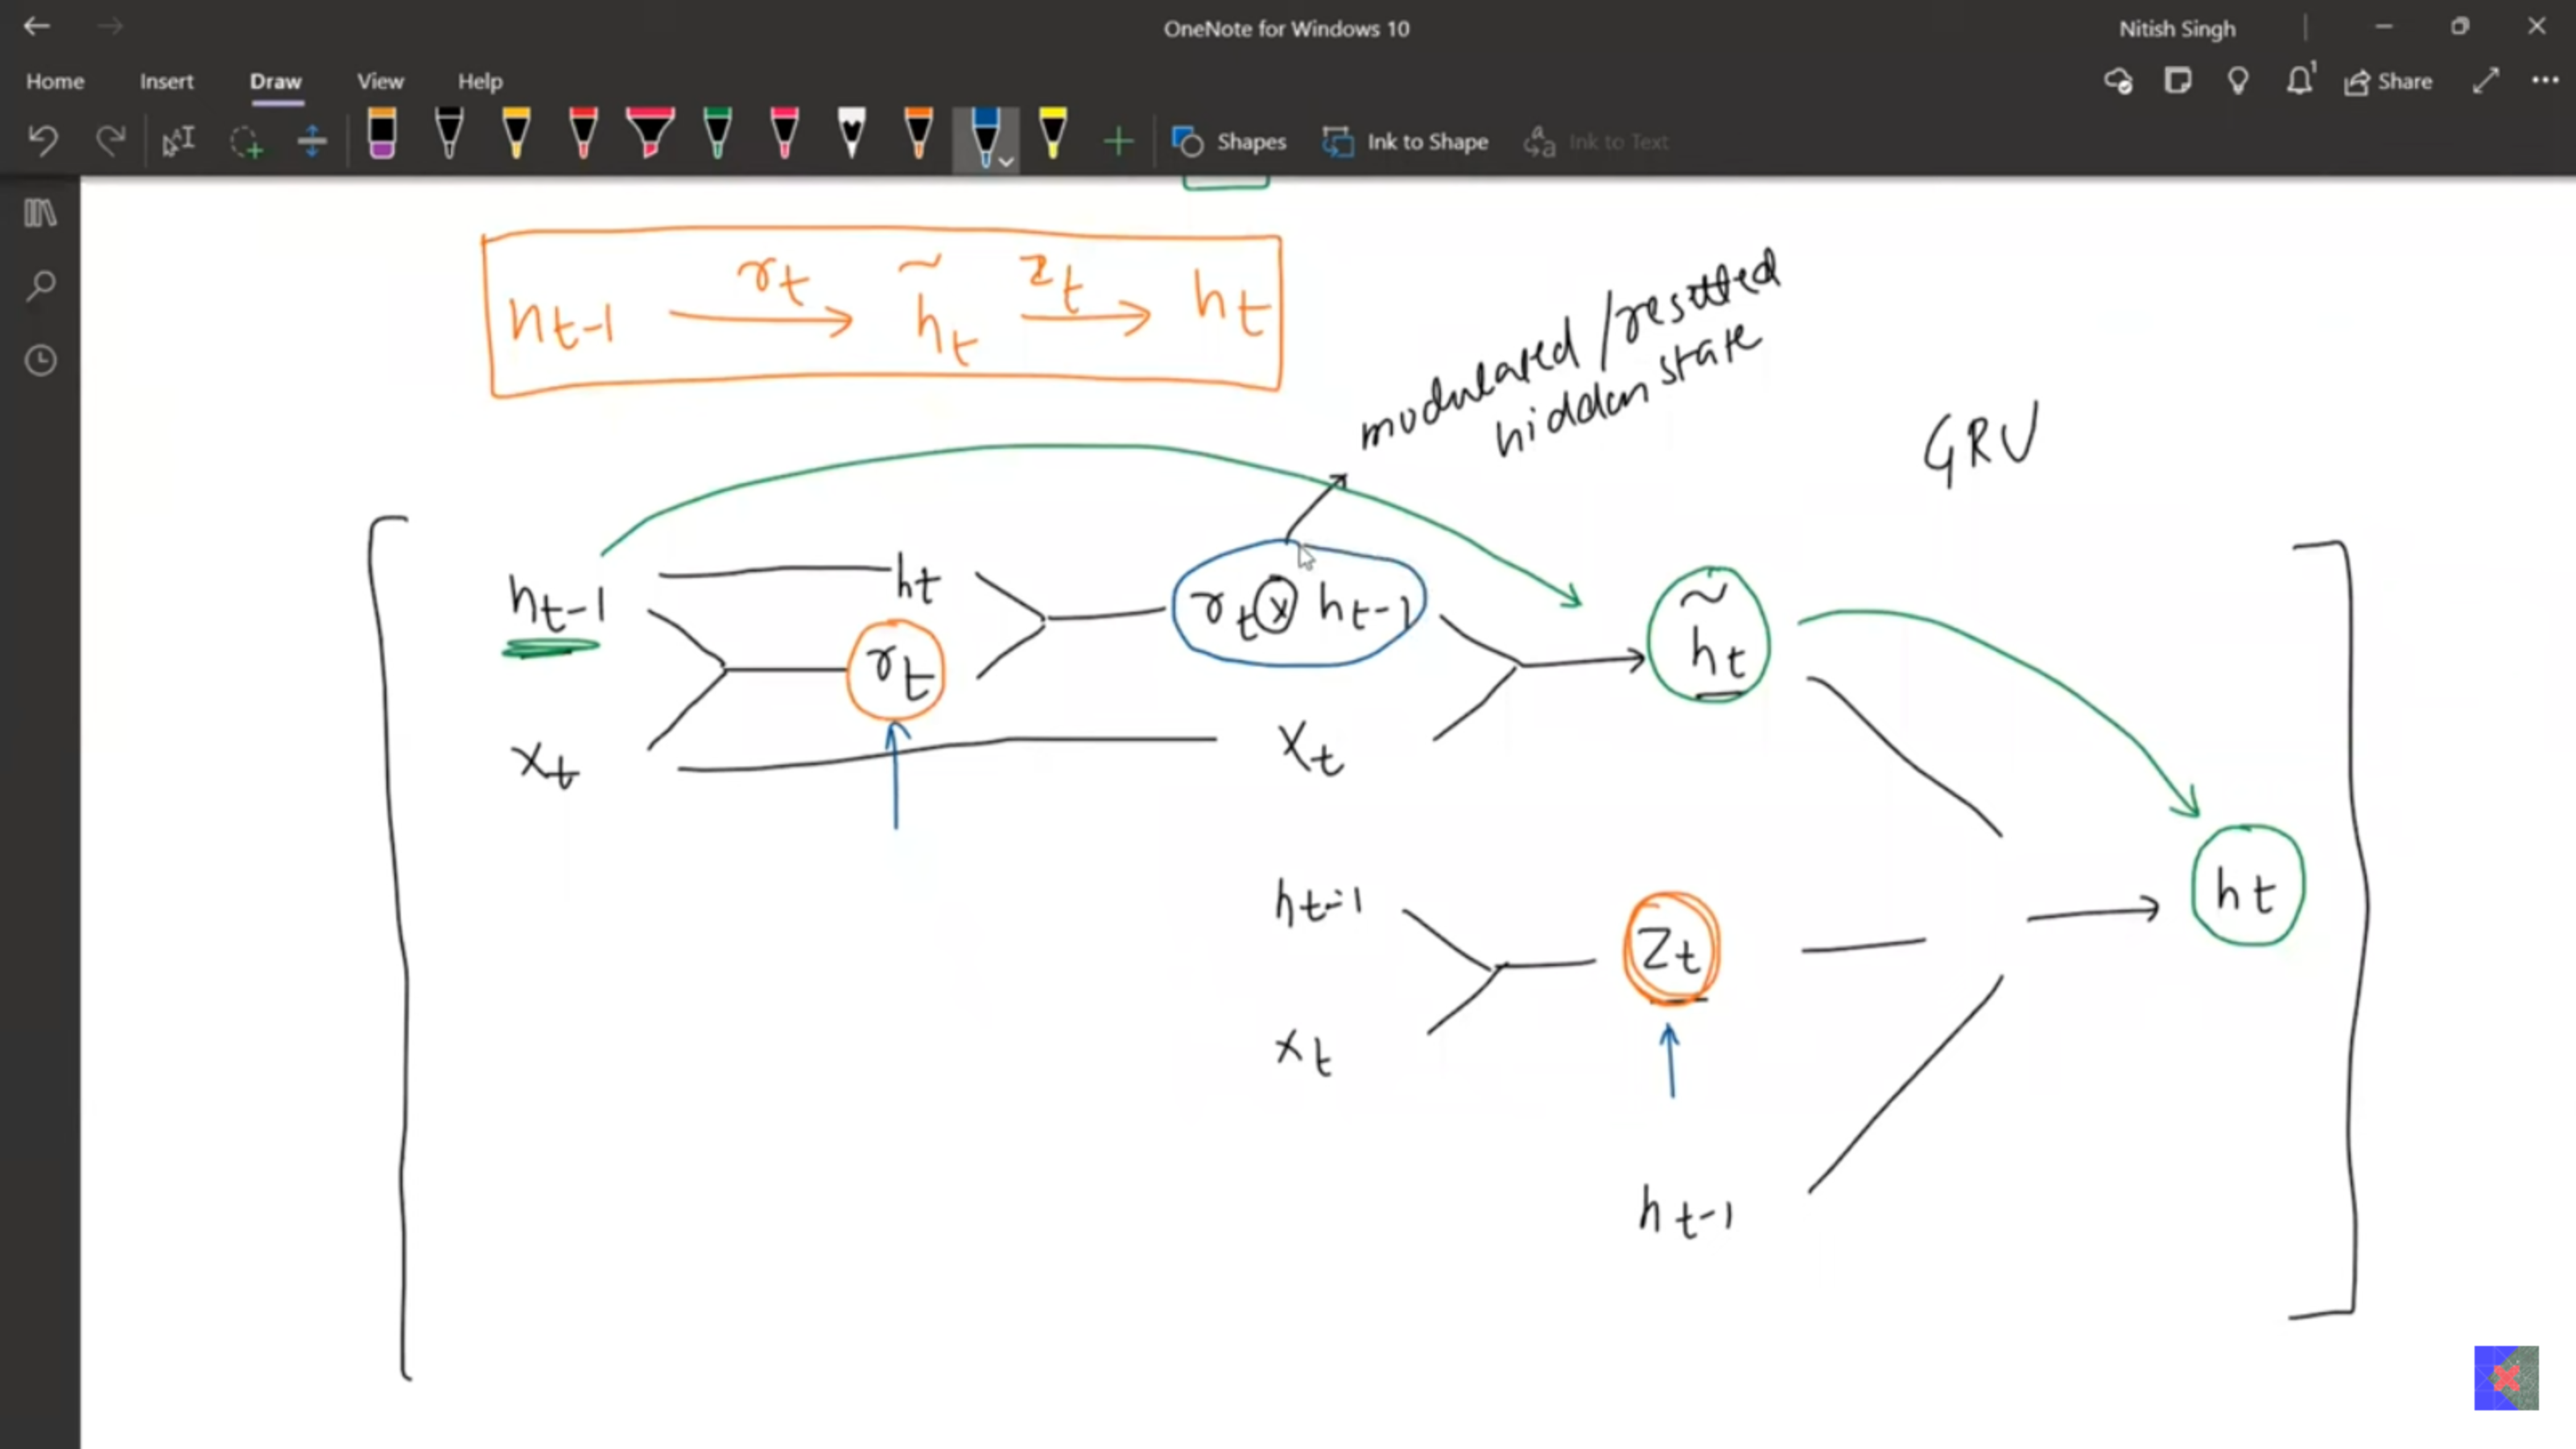 OneNote for Windows 10
Nitish Singh
Home Insert Draw View Help
1 Share
Shapes Ink to Shape Ink to Text
h_{t-1} r_t → h̃_t z_t → h_t
modulated/resetted
hidden state
GRU
h_{t-1} h_t r_t ⊗ h_{t-1} h̃_t
r_t
x_t x_t
h_{t-1} z_t h_t
x_t
h_{t-1}